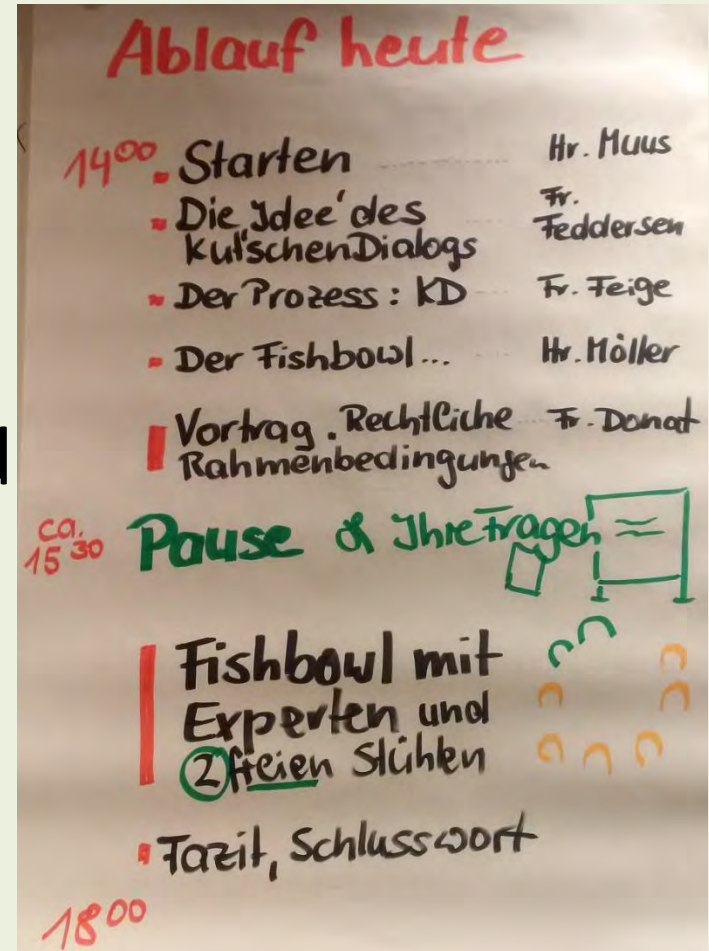 Ablauf heute
14⁰⁰ Starten Hr. Muus
Die 'Idee' des Fr.
Kut'schenDialogs Feddersen
Der Prozess: KD Fr. Feige
Der Fishbowl... Hr. Möller
Vortrag. Rechtliche Fr. Donat
Rahmenbedingungen
ca.
15³⁰ Pause & Ihre Fragen
Fishbowl mit
Experten und
2 freien Stühlen
Fazit, Schlusswort
18⁰⁰